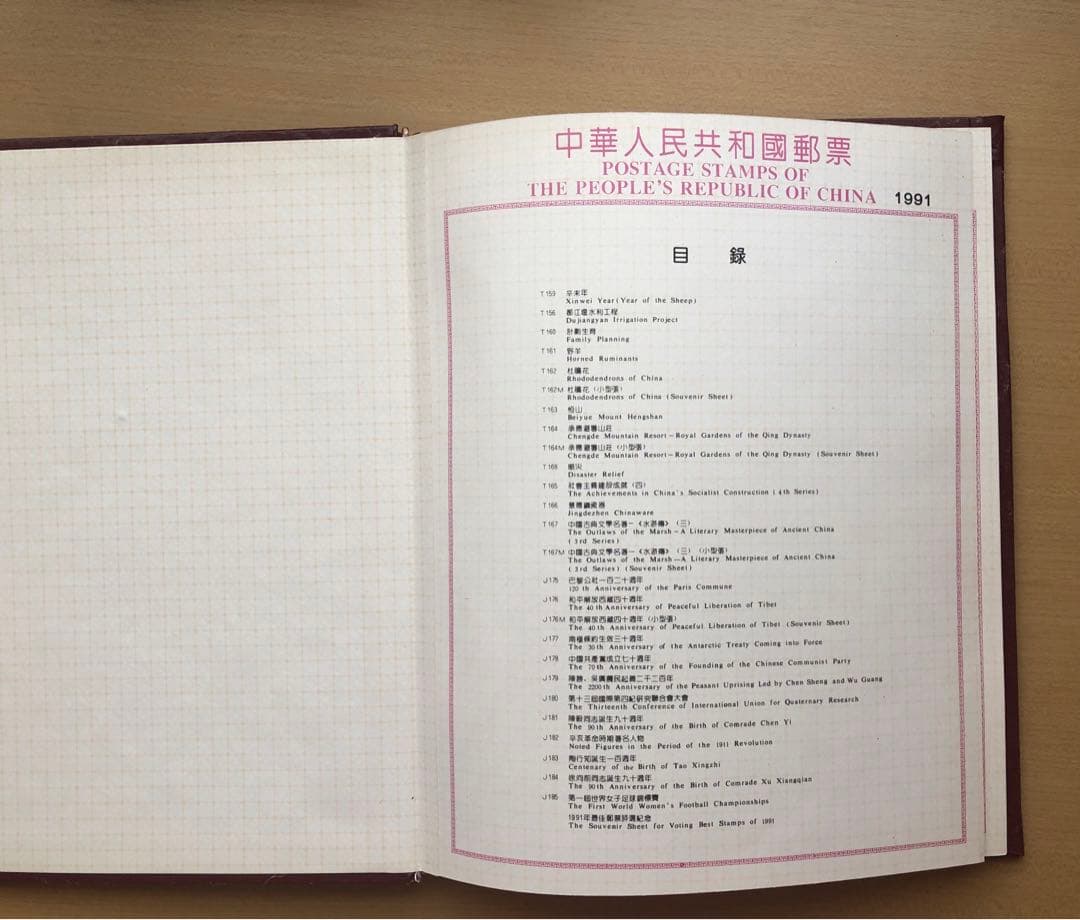 中華人民共和國郵票
POSTAGE STAMPS OF
THE PEOPLE'S REPUBLIC OF CHINA 1991
目 錄
T159 辛未年
Xinwei Year (Year of the Sheep)
T156 都江堰水利工程
Dujiangyan Irrigation Project
T160 計劃生育
Family Planning
T161 野羊
Horned Ruminants
T162 杜鵑花
Rhododendrons of China
T162M 杜鵑花（小型張）
Rhododendrons of China (Souvenir Sheet)
T163 恒山
Beiyue Mount Hengshan
T164 承德避暑山莊
Chengde Mountain Resort—Royal Gardens of the Qing Dynasty
T164M 承德避暑山莊（小型張）
Chengde Mountain Resort—Royal Gardens of the Qing Dynasty (Souvenir Sheet)
T168 賑災
Disaster Relief
T165 社會主義建設成就（四）
The Achievements in China's Socialist Construction (4th Series)
T166 景德鎮瓷器
Jingdezhen Chinaware
T167 中國古典文學名著—《水滸傳》（三）
The Outlaws of the Marsh—A Literary Masterpiece of Ancient China
(3rd Series)
T167M 中國古典文學名著—《水滸傳》（三）（小型張）
The Outlaws of the Marsh—A Literary Masterpiece of Ancient China
(3rd Series) (Souvenir Sheet)
J175 巴黎公社一百二十週年
120 th Anniversary of the Paris Commune
J176 和平解放西藏四十週年
The 40 th Anniversary of Peaceful Liberation of Tibet
J176M 和平解放西藏四十週年（小型張）
The 40th Anniversary of Peaceful Liberation of Tibet (Souvenir Sheet)
J177 南極條約生效三十週年
The 30th Anniversary of the Antarctic Treaty Coming into Force
J178 中國共產黨成立七十週年
The 70th Anniversary of the Founding of the Chinese Communist Party
J179 陳勝、吳廣農民起義二千二百年
The 2200th Anniversary of the Peasant Uprising Led by Chen Sheng and Wu Guang
J180 第十三屆國際第四紀研究聯合會大會
The Thirteenth Conference of International Union for Quaternary Research
J181 陳毅同志誕生九十週年
The 90th Anniversary of the Birth of Comrade Chen Yi
J182 辛亥革命時期著名人物
Noted Figures in the Period of the 1911 Revolution
J183 陶行知誕生一百週年
Centenary of the Birth of Tao Xingzhi
J184 徐向前同志誕生九十週年
The 90th Anniversary of the Birth of Comrade Xu Xiangqian
J185 第一屆世界女子足球錦標賽
The First World Women's Football Championships
1991年最佳郵票評選紀念
The Souvenir Sheet for Voting Best Stamps of 1991